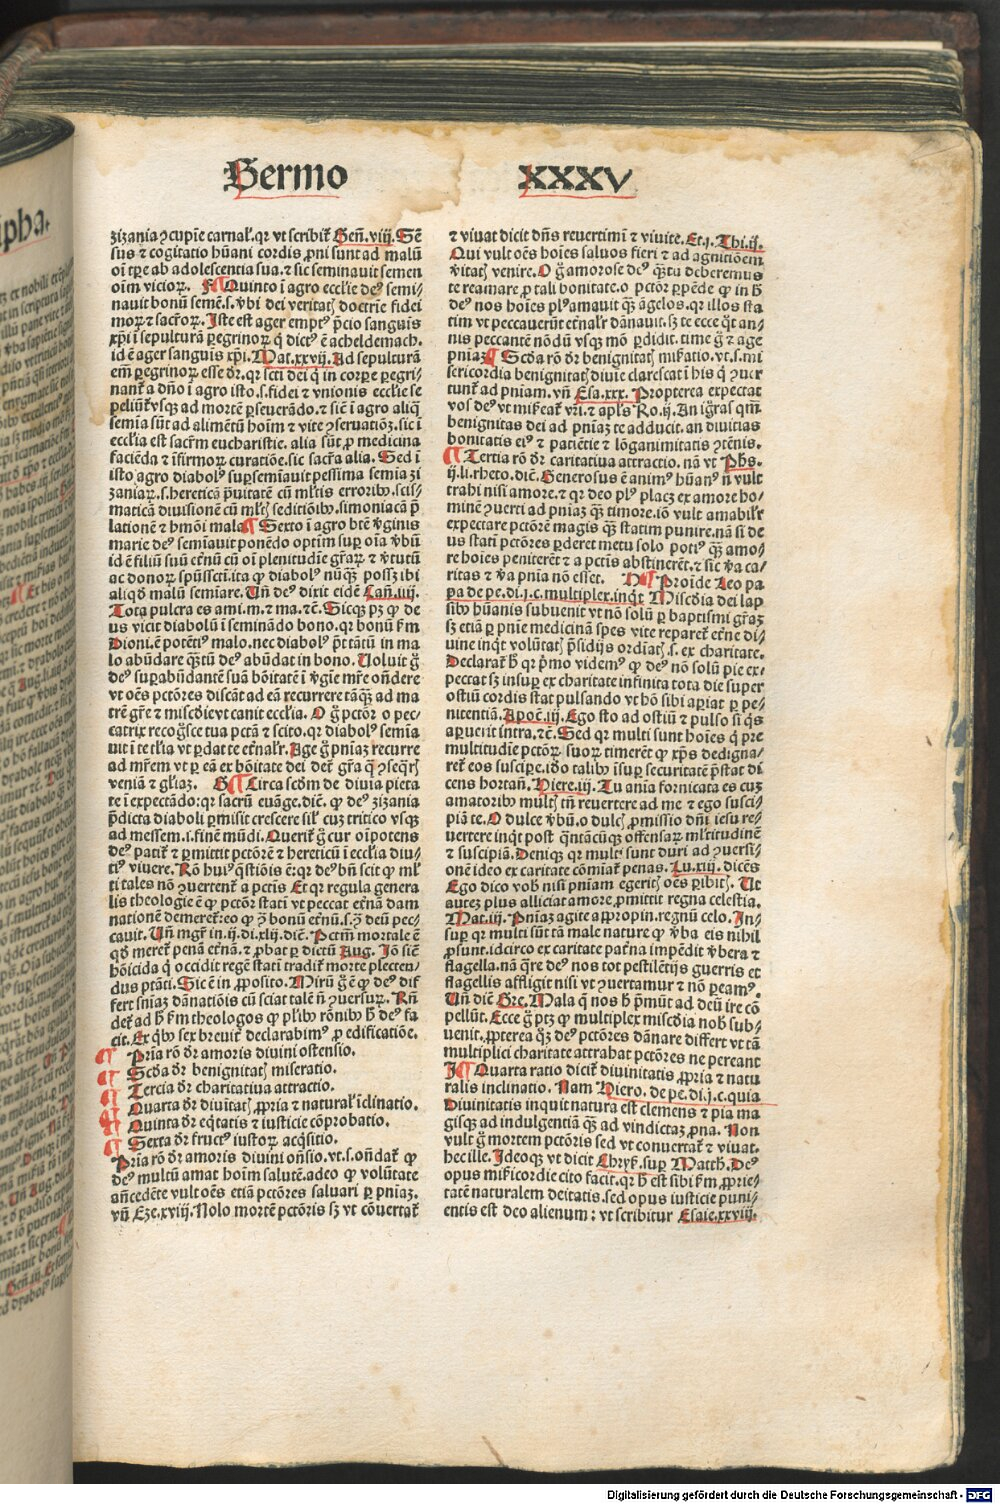 Sermo XXXV
zizania ꝯcupīe carnal̄. qr vt scribit̄ Gen̄. viij. Sē
sus ⁊ cogitatio hūani cordis ꝓni sunt ad malū
oī tꝑe ab adolescentia sua. ⁊ sic seminauit semen
oīm vicioꝝ. F ¶ Quinto ī agro eccl̄ie deꝰ semi-
nauit bonū semē. s. vbi dei veritatꝭ doctrīe fidei
moꝝ ⁊ sacr̄oꝝ. Iste est ager emptꝰ p̄cio sanguīs
xp̄i ī sepulturā peregrinoꝝ qͥ dictꝰ ē acheldemach.
id ē ager sanguīs xp̄i. Mat. xxvij. Ad sepulturā
em̄ peregrinoꝝ esse dr̄. qr scti dei qͥ in corꝑe peregri-
nant̄ a dn̄o ī agro isto. s. fidei ⁊ vnionis eccl̄ie se
peliūt̄ vsqꝫ ad mortē ꝑseuerādo. ⁊ sic̄ ī agro aliq̄
semīa sūt ad alimētū hoīm ⁊ vite ꝯseruatiōꝫ. sic ī
eccl̄ia est sacr̄m eucharistie. alia sūt ꝓ medicina
faciēda ⁊ īfirmoꝝ curatiōe. sic sacr̄a alia. Sed ī
isto agro diabolꝰ suꝑsemīauit pessima semīa zi
zaniaꝝ. s. hereticā p̄uitatē cū ml̄tis erroribꝰ. scis-
maticā divisionē cū ml̄tꝭ seditiōibꝰ. simoniacā p̄
lationē ⁊ hmōi mala ¶ Sexto ī agro btē v̓ginis
marie deꝰ semīauit ponēdo optīm suꝑ oīa v̓bū
id ē filiū suū et̄nū cū oī plenitudīe gr̄aꝝ ⁊ v̓tutū
ac donoꝝ spūsscti. ita ꝙ diabolꝰ nūqꝫ possꝫ ibi
aliqd̓ malū semīare. Vn̄ deꝰ dixit eidē Can̄. iiij.
Tota pulcra es ami. m. ⁊ ma. ⁊c̄. Sicqꝫ pꝫ ꝙ de
us vicit diabolū ī semīnādo bono. qr bonū s̄m
Dioni. ē potētiꝰ malo. nec diabolꝰ p̄t tātū in ma
lo abūdare qꝫtū deꝰ abūdat in bono. Voluit g̊
deꝰ suꝑabūdantē suā bōitatē ī v̓gīe mr̄e oñdere
vt oēs pctōres discāt ad eā recurrere tāqꝫ ad ma
trē gr̄e ⁊ misc̄die vt canit eccl̄ia. O g̊ pctōr o pec-
catrix recogn̄sce tua pctā ⁊ scito. qr diabolꝰ semīa
uit ī te tl̄ia vt ꝑdat te et̄nalr̄. Age g̊ pn̄iaꝫ recurre
ad mr̄em vt ꝑ eā ex bōitate dei det̄ gr̄a qͥ ꝯseqr̄ꝭ
veniā ⁊ gl̄iaꝫ. G ¶ Circa scd̓m de diuīa pieta
te ī expectādo: qr sacrū euāge. diē. ꝙ deꝰ zizania
p̄dicta diaboli ꝑmisit crescere sil̓ cuꝫ tritico vsqꝫ
ad messem. i. finē mūdi. Querit̄ g̊ cur oīpotens
deꝰ patit̄ ⁊ ꝑmittit pctōrē ⁊ hereticū ī eccl̄ia diu-
tiꝰ viuere. Rō huiꝰ q̄stiōis ē: qr deꝰ bn̄ scit ꝙ ml̓
ti tales nō ꝯuertent̄ a pctīs Et qr regula genera
lis theologie ē ꝙ pctōr statī vt peccat et̄nā dam
nationē demeret̄: eo ꝙ ꝯ̄ bonū et̄nū. s. ꝯ̄ deū pec-
cauit. Vn̄ mgr̄ in. ij. di. xlij. diē. Pctm̄ mortale ē
qd̓ meret̄ penā et̄nā. ⁊ ꝓbat ꝑ dictū Aug. Iō sic̄
hōicida qͥ occidit regē statī tradit̄ morte plecten-
dus ptāti. Sic ē in ꝓposito. Mirū g̊ ē ꝙ deꝰ dif
fert sniaꝫ dānatiōis cū sciat talē n̄ ꝯuersuꝝ. Rn̄
det̄ ad h̓ s̄m theologos ꝙ pl̓ibꝰ rōnibꝰ h̓ deꝰ fa
cit. Ex qͥbꝰ sex breuit̓ declarabimꝰ ꝓ edificatiōe.
¶ Pria rō dr̄ amoris diuini ostensio.
¶ Scd̓a dr̄ benignitatꝭ miseratio.
¶ Tercia dr̄ charitatiua attractio.
¶ Quarta dr̄ diuītatꝭ ꝓpria ⁊ naturał īclinatio.
¶ Quinta dr̄ eq̄tatis ⁊ iusticie cōprobatio.
¶ Sexta dr̄ fructꝰ iustoꝝ acq̄sitio.
Pria rō dr̄ amoris diuini oñsio. vt. s. oñdat̄ ꝙ
deꝰ multū amat hoīm salutē. adeo ꝙ volūtate
an̄cedēte vult oēs etiā pctōres saluari ꝑ pn̄iaꝫ.
vn̄ Eze. xviij. Nolo mortē pctōris sꝫ vt cōuertat̄
⁊ viuat dicit dn̄s reuertimī ⁊ viuite. Et. j. Thi. ij.
Qui vult oēs hoīes saluos fieri ⁊ ad agnitiōem
v̓itatꝭ venire. O g̊ amorose deꝰ qꝫtū deberemus
te reamare ꝓ tali bonitate. o pctōr ꝑpēde ꝙ in h̓
deꝰ nos hoīes plꝰ amauit qꝫ āgelos. qr illos sta
tim vt peccauerūt et̄nalr̄ dānauit. sꝫ te ecce qͦt an-
nis peccantē nōdū vsqꝫ mō ꝑdidit. time g̊ ⁊ age
pn̄iaꝫ ¶ Scd̓a rō dr̄ benignitatꝭ mis̄atio. vt. s. mi
sericordia benignitatꝭ diuīe clarescat ī his qͥ ꝯuer
tunt̄ ad pn̄iam. vn̄ Esa. xxx. Propterea expectat
vos deꝰ vt mis̄eat̄ vr̄i. ⁊ apl̓s Ro. ij. An igr̄as qm̄
benignitas dei ad pn̄iaꝫ te adducit. an diuitias
bonitatis eiꝰ ⁊ patiētie ⁊ lōganimitatis ꝯtēnis.
¶ Tertia rō dr̄ caritatiua attractio. nā vt Phs.
ij. li. rheto. diē. Generosus ē animꝰ hūanꝰ n̄ vult
trahi nisi amore. ⁊ qr deo plꝰ placꝫ ex amore ho-
minē ꝯuerti ad pn̄iaꝫ qꝫ timore. iō vult amabilr̄
expectare pctōrē magis qꝫ statim punire. nā si de
us statī pctōres ꝑderet metu solo potiꝰ qꝫ amo-
re hoīes peniterēt ⁊ a pctīs abstinerēt. ⁊ sic v̓a ca-
ritas ⁊ v̓a pn̄ia nō esset. H ¶ Proīde Leo pa
pa de pe. di. j. c. multiplex. inqͥt Misc̄dia dei lap
sibꝰ hūanis subuenit vt nō solū ꝑ baptismi gr̄aꝫ
sꝫ etiā ꝑ pn̄ie medicinā spes vite reparet̄ et̄ne di-
uine inqͥt volūtatꝭ p̄sidijs ordīatꝭ. s. ex charitate.
Declarat̄ h̓ qr p̓mo videmꝰ ꝙ deꝰ nō solū pie ex-
pectat sꝫ insuꝑ ex charitate infinita tota die super
ostiū cordis stat pulsando vt hō sibi aꝑiat ꝑ pe-
nitentiā. Apoc̄. iij. Ego sto ad ostiū ⁊ pulso si qͥs
aꝑuerit intra. ⁊c̄. Sed qr multi sunt hoīes qͥ pre
multitudīe pctōꝝ suoꝝ timerēt ꝙ xp̄s dedigna-
ret̄ eos suscipe. iō talibꝰ īsuꝑ securitatē p̄stat di
cens hortan̄. Hiere. iij. Tu aūt fornicata es cuꝫ
amatoribꝰ multꝭ tn̄ reuertere ad me ⁊ ego susci-
piā te. O dulce v̓bū. o dulcꝭ ꝓmissio dn̄i iesu re-
uertere inqͥt post qͣntācūqꝫ offensaꝝ ml̓titudinē
⁊ suscipiā. Deniqꝫ qr multꝰ sunt duri ad ꝯuersi-
onē ideo ex caritate cōmīat̄ penas. Lu. xiij. dicēs
Ego dico vobꝭ nisi pn̄iam egeritꝭ oēs ꝑibitꝭ. Ut
auteꝫ plus alliciat amore ꝓmittit regna celestia.
Mat. iij. Pn̄iaꝫ agite aꝓpropin. regnū celo. In-
suꝑ qr multi sūt tā male nature ꝙ v̓ba eis nihil
ꝓsunt. idcirco ex caritate pat̓na impēdit v̓bera ⁊
flagella. nā qͣre deꝰ nos tot pestilētijs guerris et
flagellis affligit nisi vt ꝯuertamur ⁊ nō ꝑeamꝰ.
Vn̄ diē Gre. Mala qͥ nos h̓ p̓mūt ad deū ire cō
pellūt. Ecce g̊ ptꝫ ꝙ multiplex misc̄dia nobꝭ sub-
uenit. ꝓpterea qꝫ deꝰ pctōres dānare differt vt tā
multiplici charitate attrahat pctōres ne pereant
I ¶ Quarta ratio dicit̄ diuinitatis ꝓpria ⁊ natu
ralis inclinatio. Nam Hiero. de pe. di. j. c. quia
Diuinitatis inquit natura est clemens ⁊ pia ma
gisqꝫ ad indulgentiā qꝫ ad vindictaꝫ ꝓna. Non
vult g̊ mortem pctōris sed vt conuertat̄ ⁊ viuat.
hec ille. Ideoqꝫ vt dicit Chrys̄. suꝑ Matth. Deꝰ
opus mis̄icordie cito facit. qr h̓ est sibi s̄m ꝓprie-
tatē naturalem deitatis. sed opus iusticie puni-
entis est deo alienum: vt scribitur Esaie. xxviij.
Digitalisierung gefördert durch die Deutsche Forschungsgemeinschaft - DFG